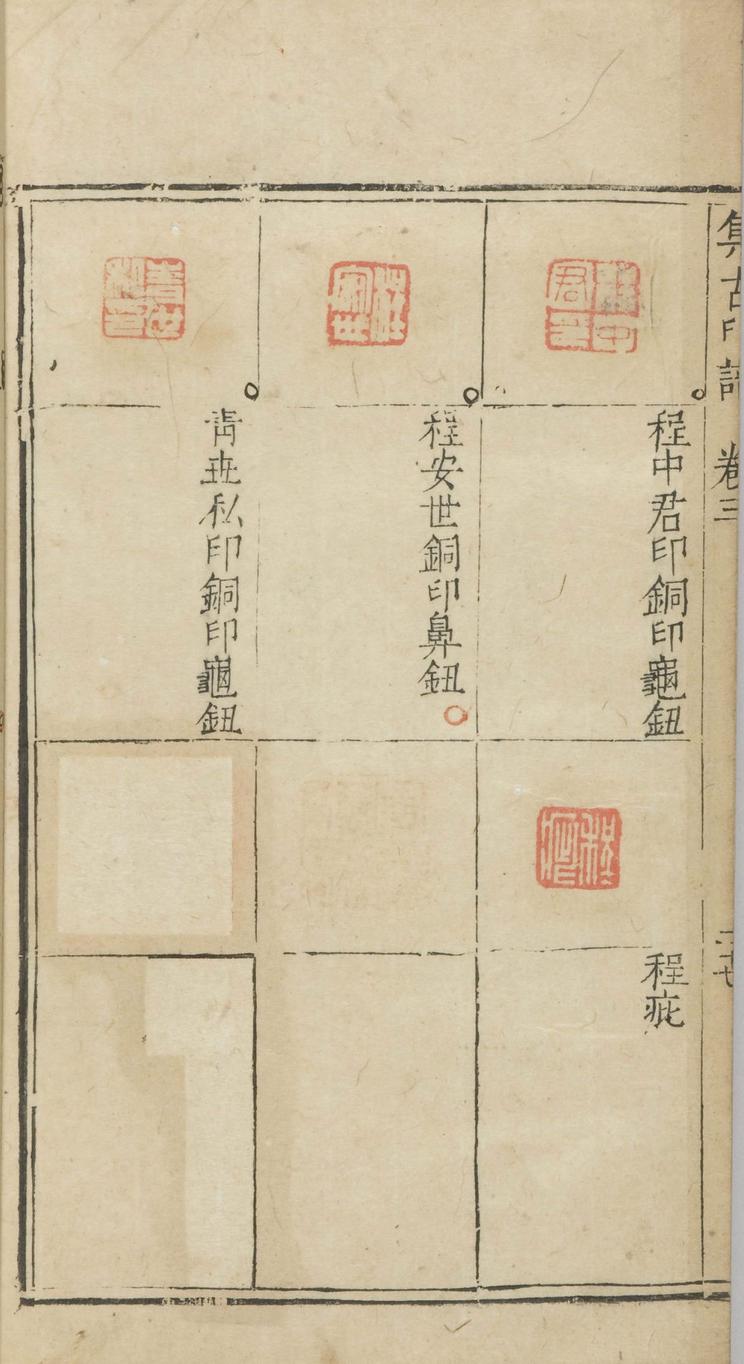 集古印譜 卷三
二十七
程中君印銅印龜鈕
程安世銅印鼻鈕
靑世私印銅印龜鈕
程疵